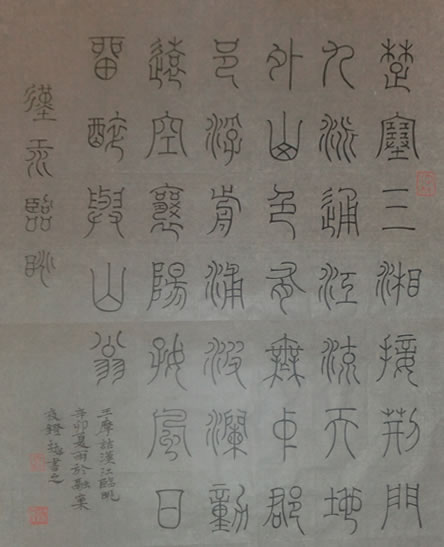 楚塞三湘接荊門
九派通江流天地
外山色有無中郡
邑浮前浦波瀾動
遠空襄陽好風日
留醉與山翁
漢江臨眺
王摩詰漢江臨眺
辛卯夏雨於融
夜鐙書之